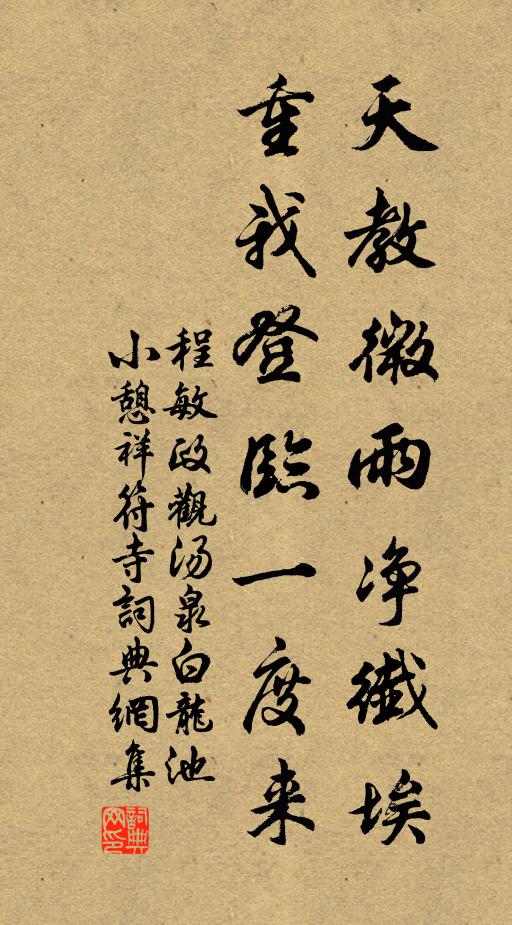 天教微雨净纖埃
重我登臨一度来
程敏政觀汤泉白龍池
小憩祥符寺詞典網集
詞典网印